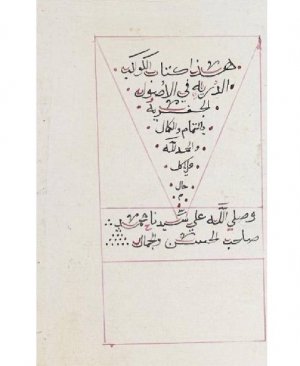 هذا كتاب الكواكب
الدرية في الاصول
الجفرية
بالتمام والكمال
والحمد لله
على كل
حال
م
وصلي الله على سيدنا محمد
صاحب الحسن والجمال